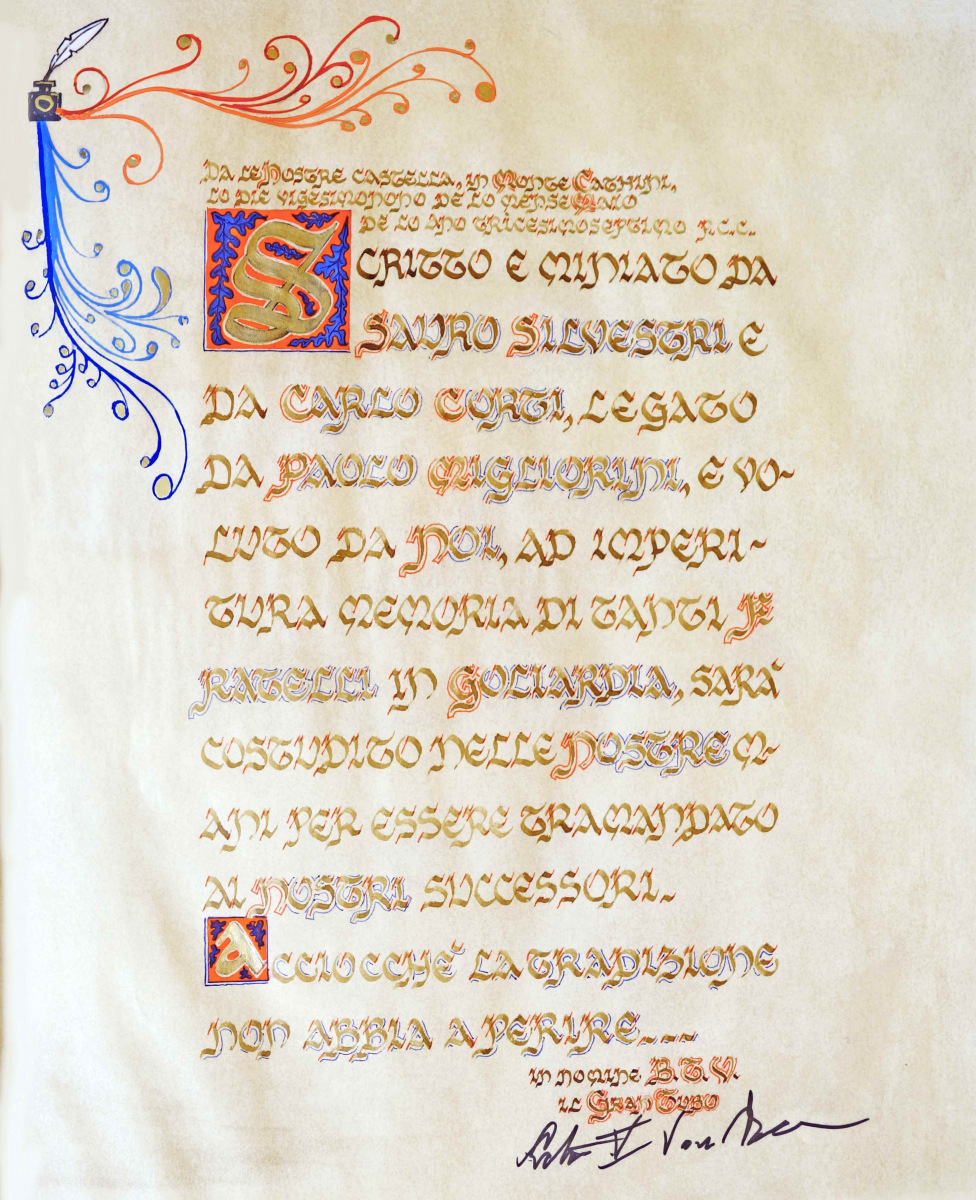 Da le Nostre Castella, in Monte Cathini,
lo die vigesimonono de lo mense Maio
de lo ano tricesimoseptimo
Scritto e miniato da
Sauro Silvestri e
da Carlo Corti, legato
da Paolo Migliorini, e vo-
luto da Noi, ad imperi-
tura memoria di tanti F
ratelli in Goliardia, sarà
costudito nelle Nostre m-
ani per essere tramandato
ai Nostri successori.
Acciocchè la tradizione
non abbia a perire....
in nomine B.T.V.
il Gran Tubo